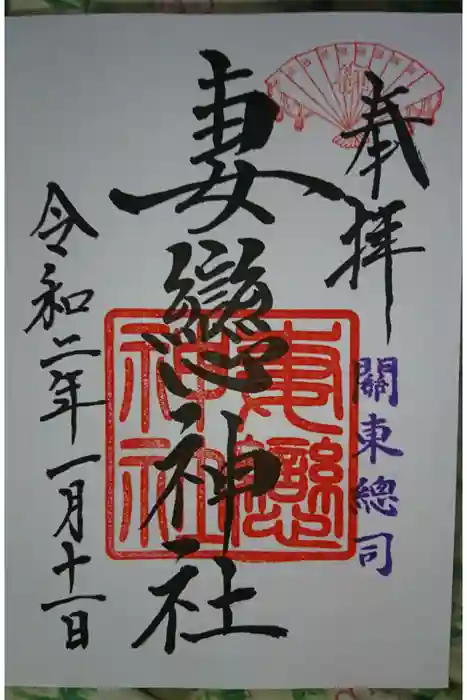 奉拝
關東總司
妻戀神社
令和二年一月十一日
妻戀
神社